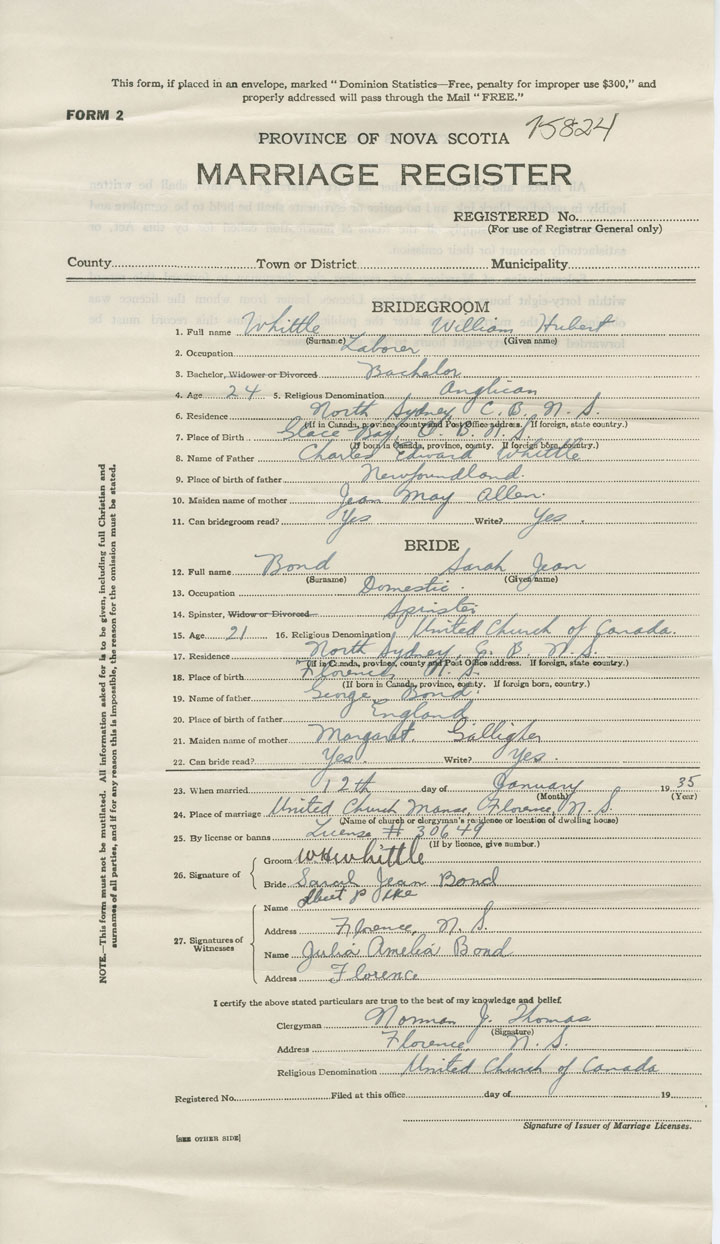 This form, if placed in an envelope, marked "Dominion Statistics—Free, penalty for improper use $300," and
properly addressed will pass through the Mail "FREE."
FORM 2
15824
PROVINCE OF NOVA SCOTIA
MARRIAGE REGISTER
REGISTERED No.
(For use of Registrar General only)
County Town or District Municipality
BRIDEGROOM
1. Full name Whittle William Hubert
(Surname) (Given name)
2. Occupation Laborer
3. Bachelor, Widower or Divorced Bachelor
4. Age 24 5. Religious Denomination Anglican
6. Residence North Sydney C. B. N. S.
(If in Canada, province, county and Post Office address. If foreign, state country.)
7. Place of Birth Glace Bay C. B. N. S.
(If born in Canada, province, county. If foreign born, country.)
8. Name of Father Charles Edward Whittle
9. Place of birth of father Newfoundland.
10. Maiden name of mother Jean May Allen.
11. Can bridegroom read? Yes Write? Yes.
BRIDE
12. Full name Bond Sarah Jean
(Surname) (Given name)
13. Occupation Domestic.
14. Spinster, Widow or Divorced Spinster
15. Age 21 16. Religious Denomination United Church of Canada.
17. Residence North Sydney, C. B. N. S.
(If in Canada, province, county and Post Office address. If foreign, state country.)
18. Place of birth Florence N. S.
(If born in Canada, province, county. If foreign born, country.)
19. Name of father George Bond.
20. Place of birth of father England
21. Maiden name of mother Margaret Galligher
22. Can bride read? Yes. Write? Yes.
23. When married 12th day of January 1935
(Month) (Year)
24. Place of marriage United Church Manse, Florence, N. S.
(Name of church or clergyman's residence or location of dwelling house)
25. By license or banns License # 30649
(If by licence, give number.)
26. Signature of Groom WHWhittle
Bride Sarah Jean Bond
27. Signatures of Witnesses
Name Albert P Pike
Address Florence, N. S.
Name Julia Amelia Bond
Address Florence
NOTE.—This form must not be mutilated. All information asked for is to be given, including full Christian and
surnames of all parties, and if for any reason this is impossible, the reason for the omission must be stated.
I certify the above stated particulars are true to the best of my knowledge and belief.
Clergyman Norman J. Thomas
(Signature)
Address Florence, N. S.
Religious Denomination United Church of Canada
Registered No. Filed at this office day of 19
Signature of Issuer of Marriage Licenses.
[SEE OTHER SIDE]